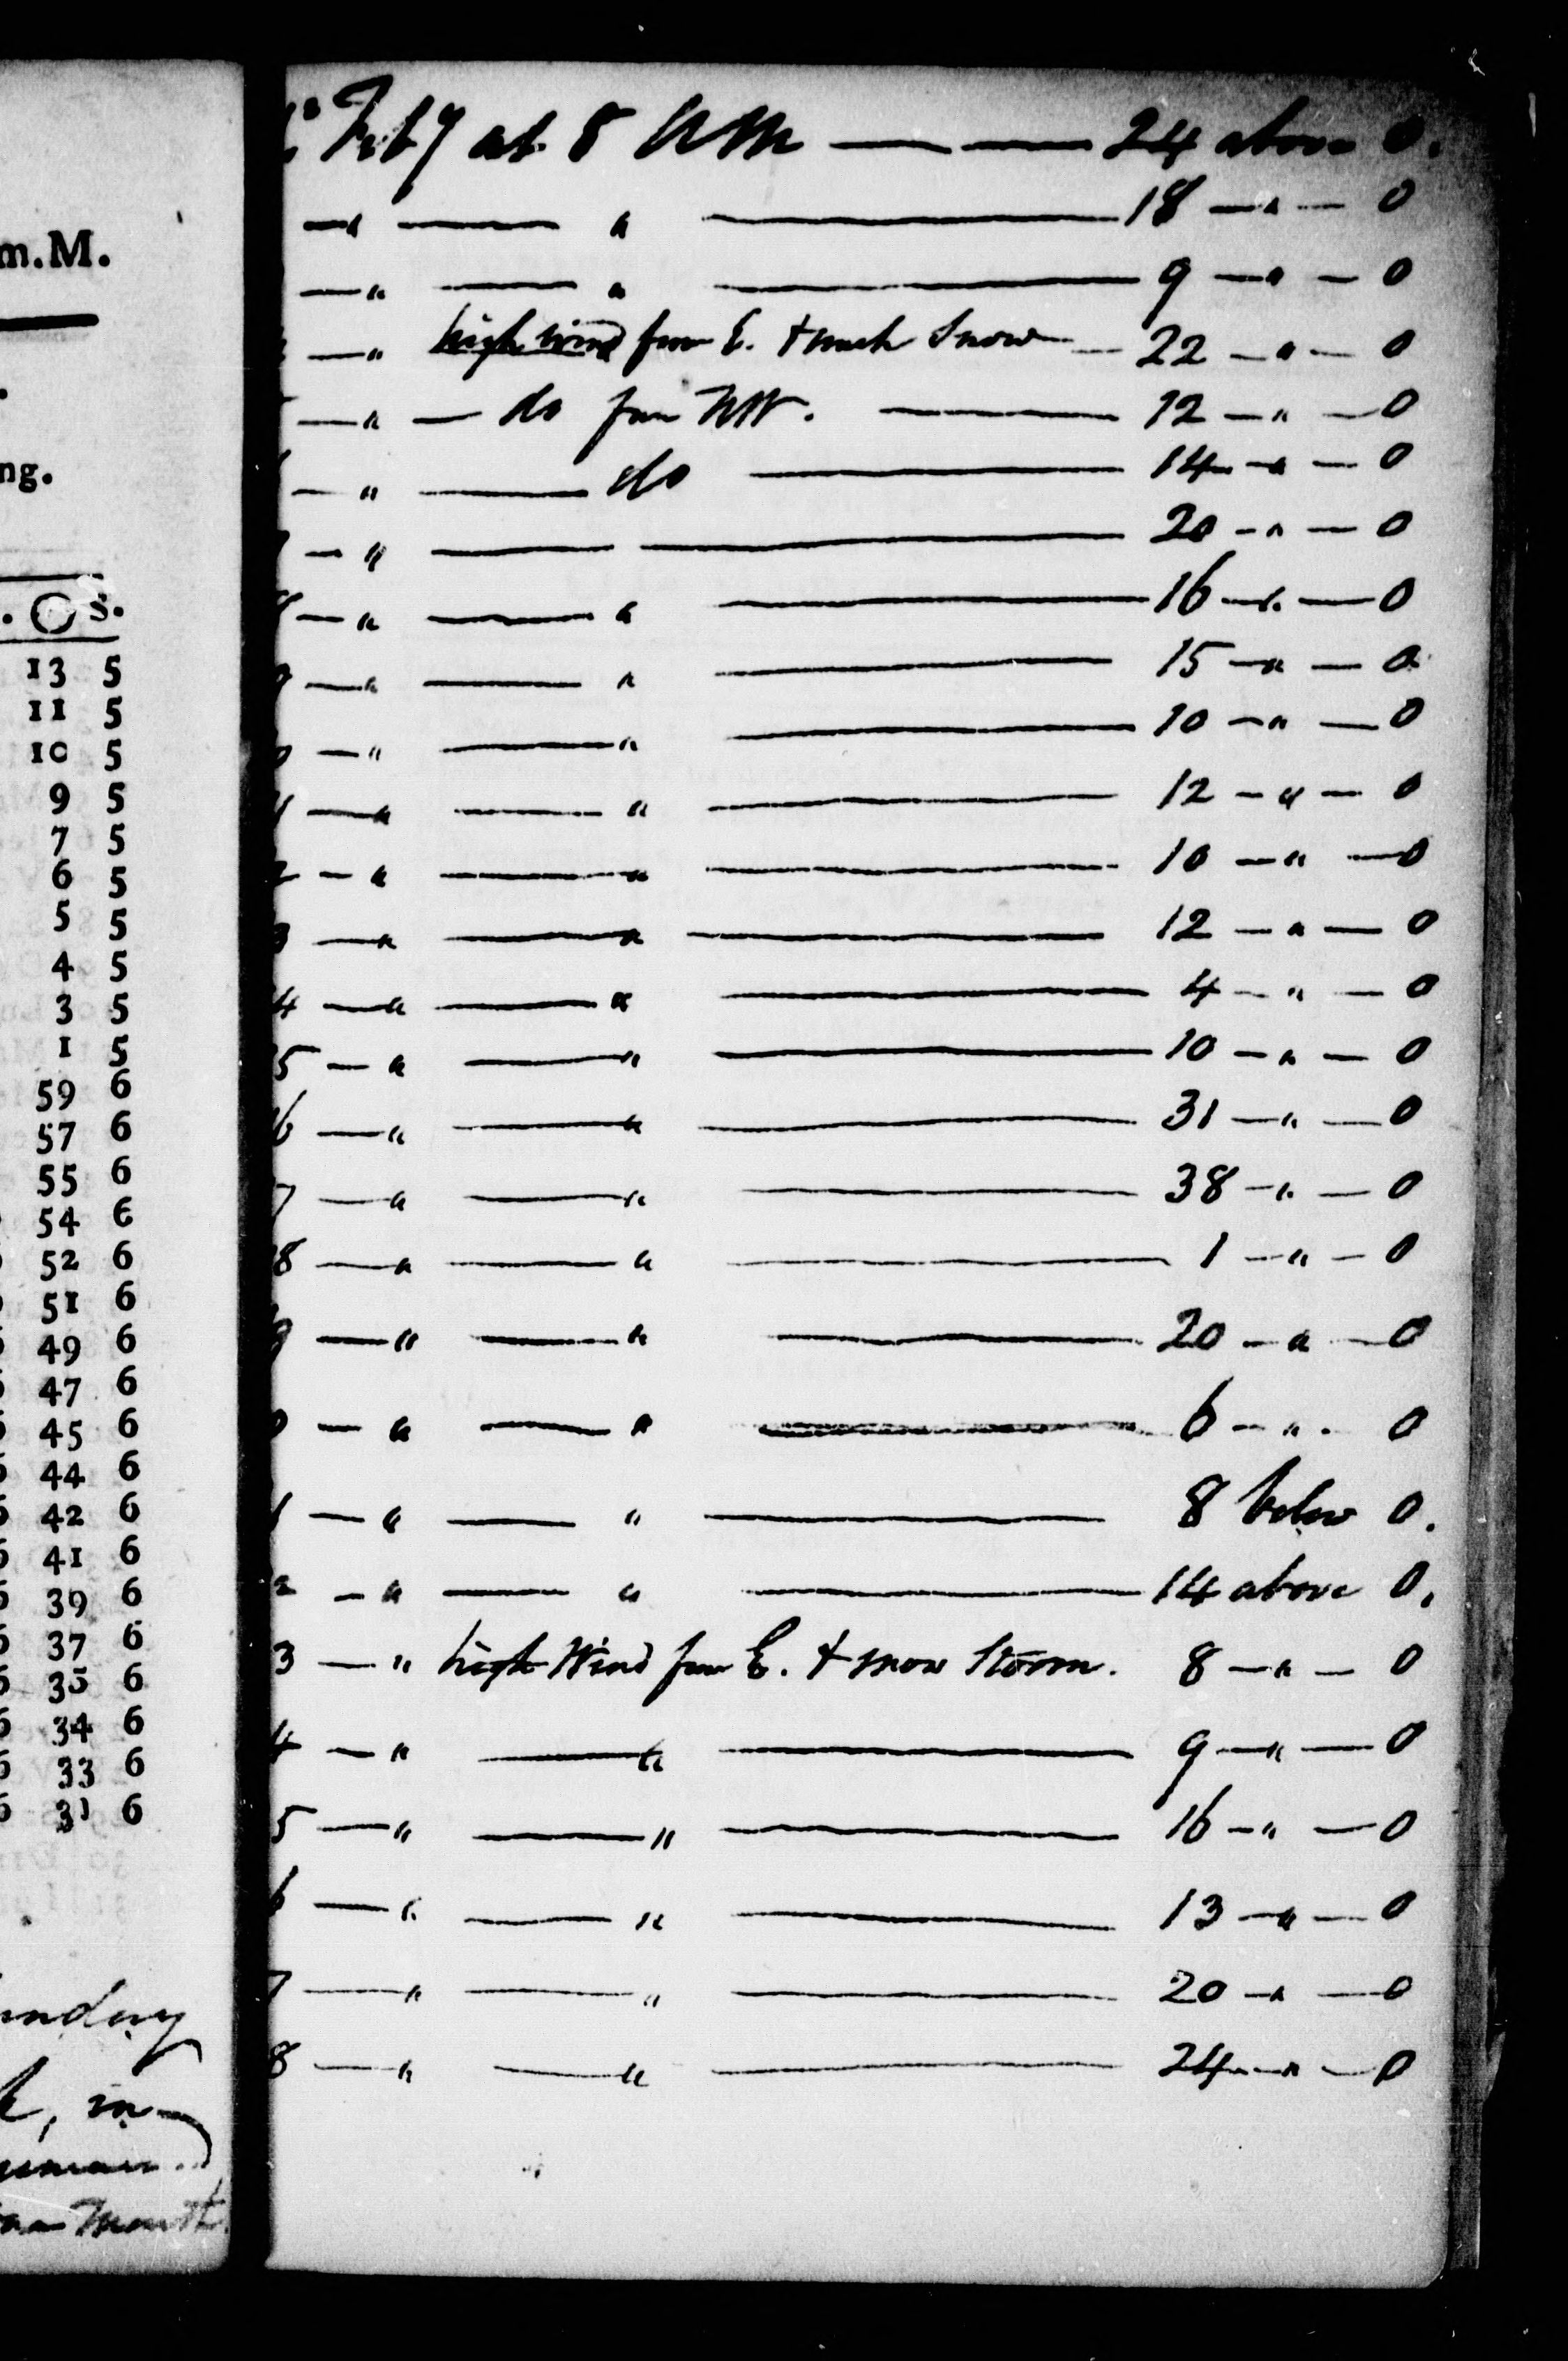 m.M.
ng.
. ☉ s.
13 5
11 5
10 5
9 5
7 5
6 5
5 5
4 5
3 5
1 5
59 6
57 6
55 6
54 6
52 6
51 6
49 6
47 6
45 6
44 6
42 6
41 6
39 6
37 6
35 6
34 6
33 6
31 6
in
Month
Feby at 8 AM — — 24 above 0.
— " — " — 18 — " — 0
— " — " — 9 — " — 0
— " high wind from E. & much Snow — 22 — " — 0
— " — do from NW. — 12 — " — 0
— " — do — 14 — " — 0
— " — — 20 — " — 0
— " — " — 16 — " — 0
9 — " — " — 15 — " — 0
— " — " — 10 — " — 0
1 — " — " — 12 — " — 0
2 — " — " — 10 — " — 0
3 — " — " — 12 — " — 0
4 — " — " — 4 — " — 0
5 — " — " — 10 — " — 0
6 — " — " — 31 — " — 0
7 — " — " — 38 — " — 0
8 — " — " — 1 — " — 0
9 — " — " — 20 — " — 0
0 — " — " — 6 — " . 0
1 — " — " — 8 below 0.
2 — " — " — 14 above 0.
3 — " high Wind from E. & snow Storm. 8 — " — 0
4 — " — " — 9 — " — 0
5 — " — " — 16 — " — 0
6 — " — " — 13 — " — 0
7 — " — " — 20 — " — 0
8 — " — " — 24 — " — 0